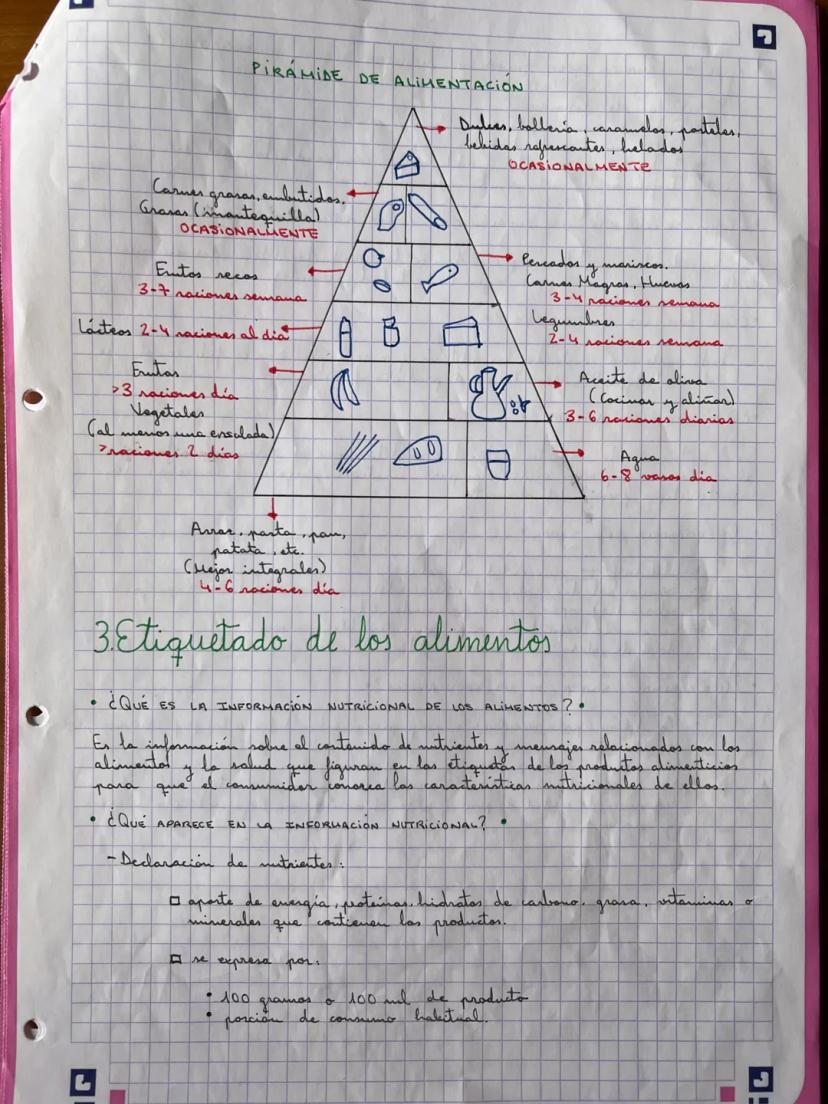 PIRÁMIDE DE ALIMENTACIÓN
Dulces, bollería, caramelos, pasteles,
bebidas refrescantes, helados
OCASIONALMENTE
Carnes grasas, embutidos.
Grasas (mantequilla)
OCASIONALMENTE
Pescados y mariscos.
Carnes Magras, Huevos
3-4 raciones semana
Legumbres
2-4 raciones semana
Frutos secos
3-7 raciones semana
Lácteos 2-4 raciones al día
Frutas
>3 raciones día
Vegetales
(al menos una ensalada)
>raciones 2 días
Aceite de oliva
(Cocinar y aliñar)
3-6 raciones diarias
Agua
6-8 vasos día
Arroz, pasta, pan,
patata, etc.
(Mejor integrales)
4-6 raciones día
3.Etiquetado de los alimentos
• ¿QUÉ ES LA INFORMACIÓN NUTRICIONAL DE LOS ALIMENTOS? •
Es la información sobre el contenido de nutrientes y mensajes relacionados con los
alimentos y la salud que figuran en las etiquetas de los productos alimenticios
para que el consumidor conozca las características nutricionales de ellos.
• ¿QUÉ APARECE EN LA INFORMACIÓN NUTRICIONAL? •
- Declaración de nutrientes:
aporte de energía, proteínas, hidratos de carbono, grasa, vitaminas o
minerales que contienen los productos.
se expresa por:
• 100 gramos o 100 ml de producto
• porción de consumo habitual.